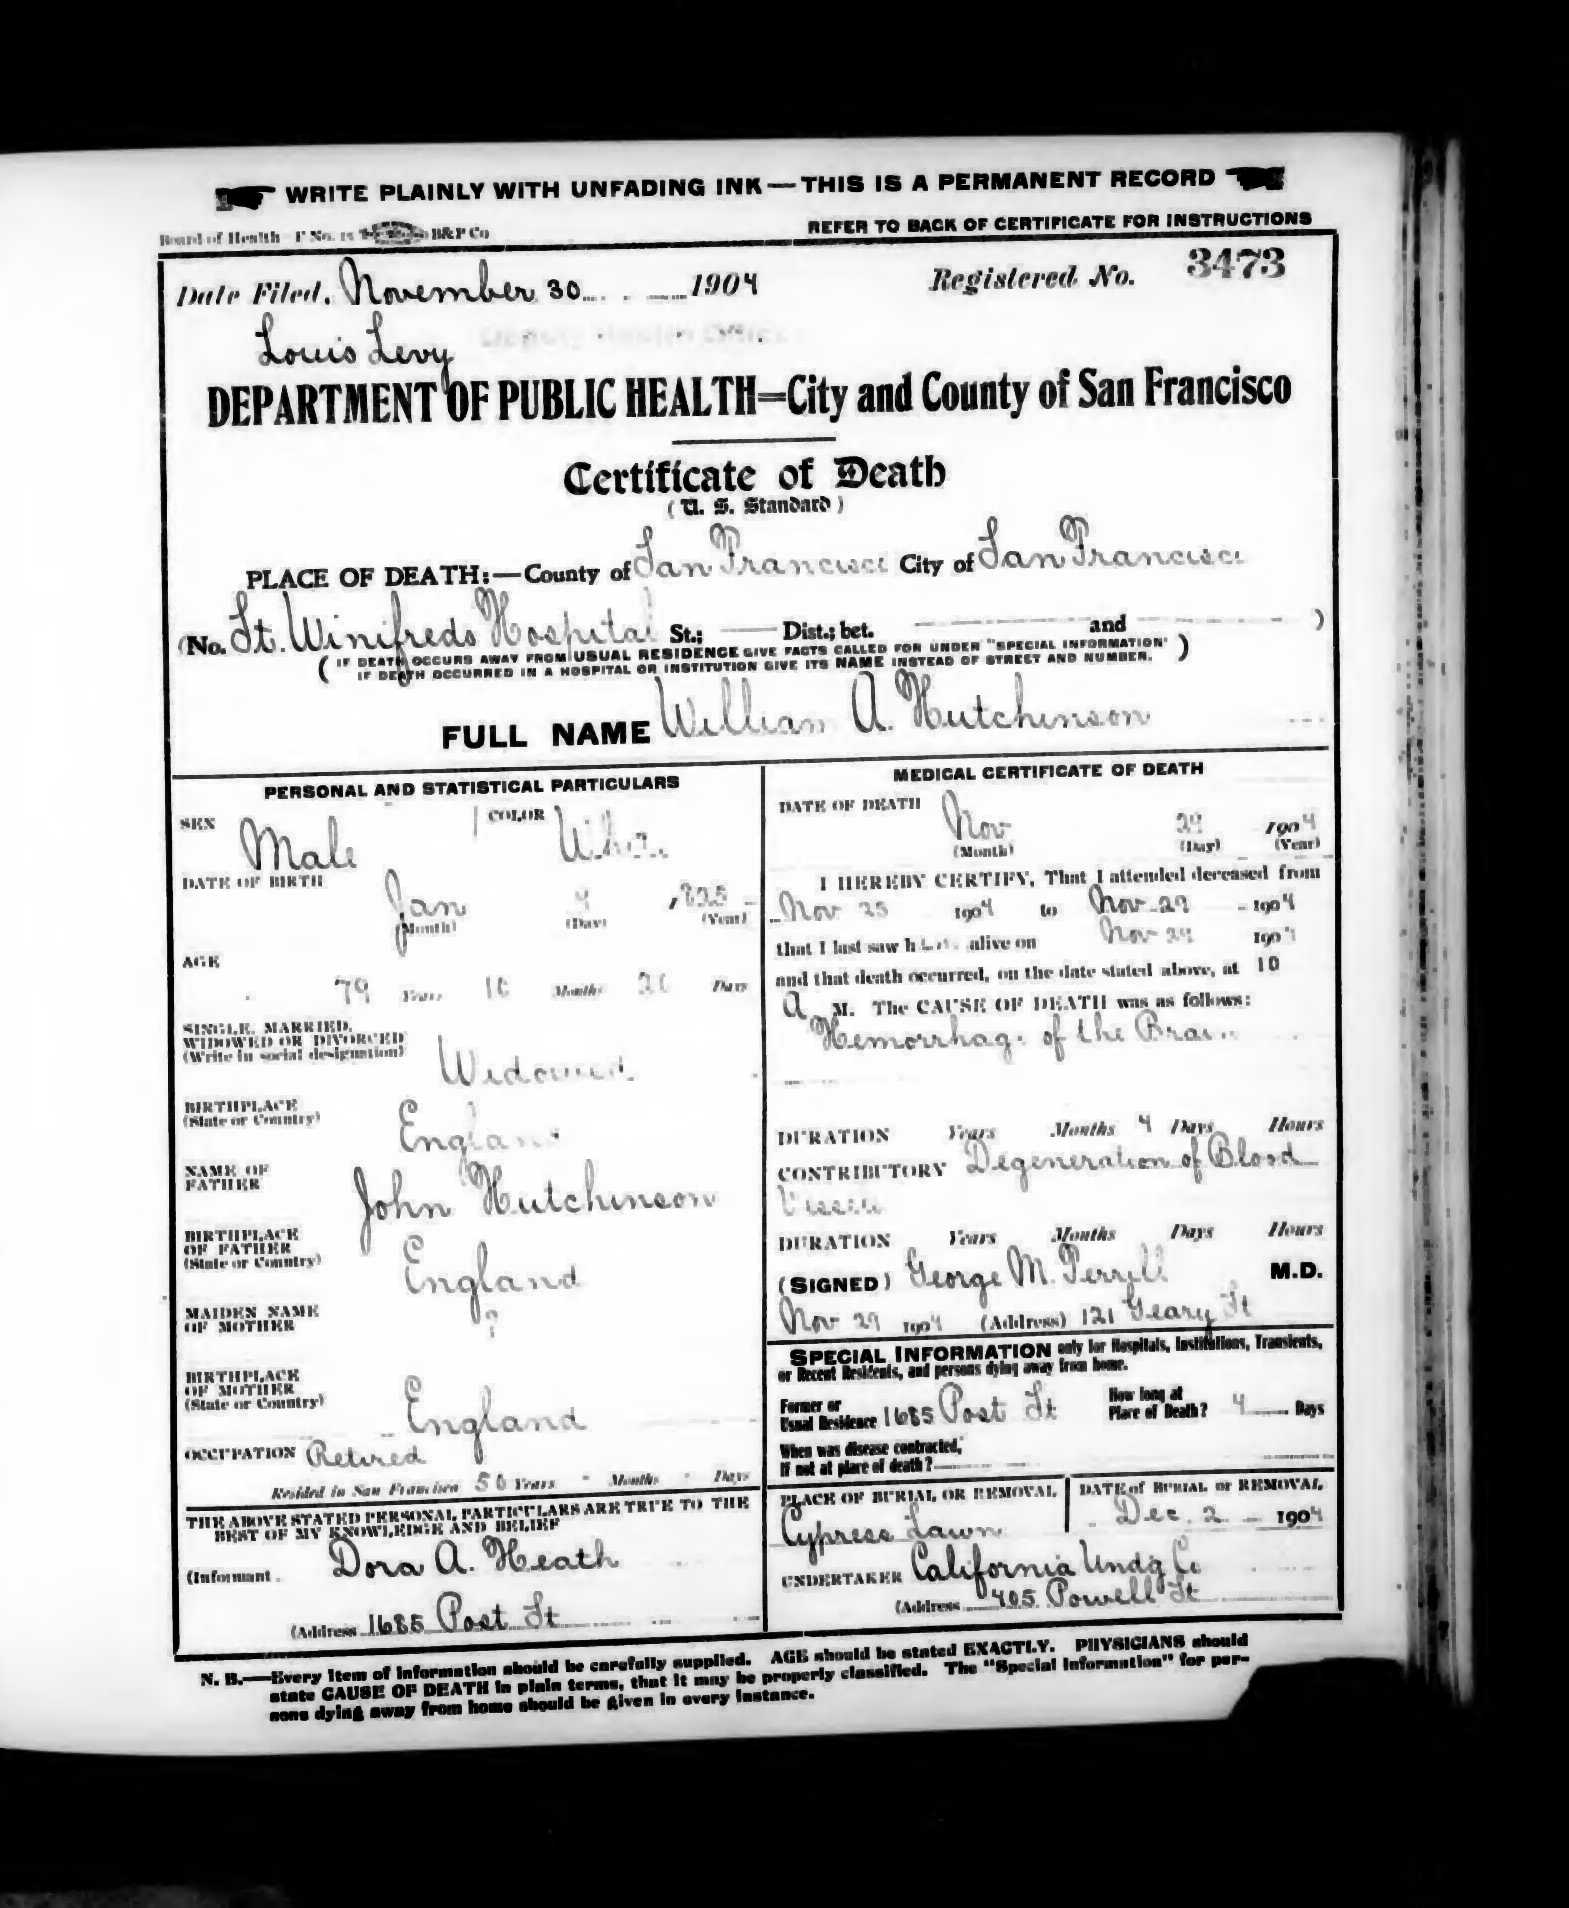 WRITE PLAINLY WITH UNFADING INK—THIS IS A PERMANENT RECORD
Board of Health F No. 15 B&P Co REFER TO BACK OF CERTIFICATE FOR INSTRUCTIONS
Date Filed, November 30 1904 Registered No. 3473
Louis Levy
DEPARTMENT OF PUBLIC HEALTH=City and County of San Francisco
Certificate of Death
(U. S. Standard)
PLACE OF DEATH:—County of San Francisco City of San Francisco
(No. St. Winifreds Hospital St.; Dist.; bet. and )
(IF DEATH OCCURS AWAY FROM USUAL RESIDENCE GIVE FACTS CALLED FOR UNDER "SPECIAL INFORMATION"
IF DEATH OCCURRED IN A HOSPITAL OR INSTITUTION GIVE ITS NAME INSTEAD OF STREET AND NUMBER.)
FULL NAME William A. Hutchinson
PERSONAL AND STATISTICAL PARTICULARS
SEX Male COLOR White
DATE OF BIRTH Jan 9 1825
(Month) (Day) (Year)
AGE
79 Years 10 Months 20 Days
SINGLE, MARRIED,
WIDOWED OR DIVORCED
(Write in social designation) Widowed
BIRTHPLACE
(State or Country) England
NAME OF
FATHER John Hutchinson
BIRTHPLACE
OF FATHER
(State or Country) England
MAIDEN NAME
OF MOTHER ?
BIRTHPLACE
OF MOTHER
(State or Country) England
OCCUPATION Retired
Resided in San Francisco 50 Years - Months - Days
THE ABOVE STATED PERSONAL PARTICULARS ARE TRUE TO THE
BEST OF MY KNOWLEDGE AND BELIEF
(Informant Dora A. Heath
(Address 1685 Post St
MEDICAL CERTIFICATE OF DEATH
DATE OF DEATH Nov 29 1904
(Month) (Day) (Year)
I HEREBY CERTIFY, That I attended deceased from
Nov 25 1904 to Nov 29 1904
that I last saw him alive on Nov 29 1904
and that death occurred, on the date stated above, at 10
A M. The CAUSE OF DEATH was as follows:
Hemorrhage of the Brain
DURATION Years Months 4 Days Hours
CONTRIBUTORY Degeneration of Blood
DURATION Years Months Days Hours
(SIGNED) George M. Terrill M.D.
Nov 29 1904 (Address) 121 Geary St
SPECIAL INFORMATION only for Hospitals, Institutions, Transients,
or Recent Residents, and persons dying away from home.
Former or
Usual Residence 1685 Post St
How long at
Place of Death? 4 Days
When was disease contracted,
If not at place of death?
PLACE OF BURIAL OR REMOVAL DATE of BURIAL or REMOVAL
Cypress Lawn Dec. 2 1904
UNDERTAKER California Undg Co
(Address 405 Powell St
N. B.—Every item of information should be carefully supplied. AGE should be stated EXACTLY. PHYSICIANS should
state CAUSE OF DEATH in plain terms, that it may be properly classified. The "Special Information" for per-
sons dying away from home should be given in every instance.